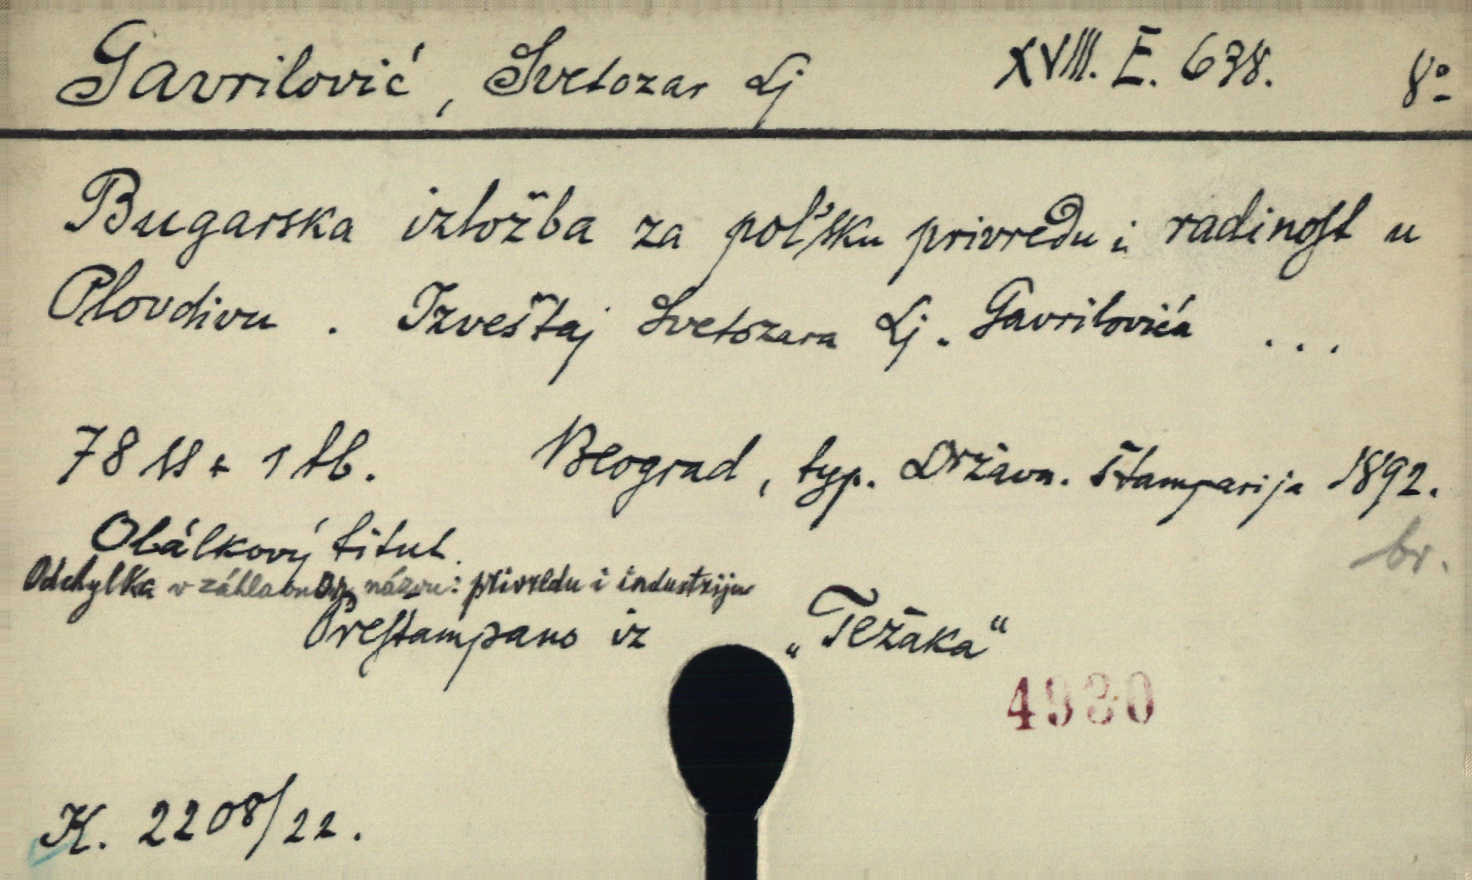 Gavrilović, Svetozar Lj XVIII. E. 638. 8º
Bugarska izložba za poľsku privredu i radinost u
Plovdivu. Izveštaj Svetozara Lj. Gavrilovića ...
78 ss + 1 tb. Beograd, typ. Državn. štamparija 1892.
Obálkový titul.
br.
Odchylka v záhlavn. názvu: privredu i industriju
Preštampano iz „Težaka“
4930
K. 2208/22.